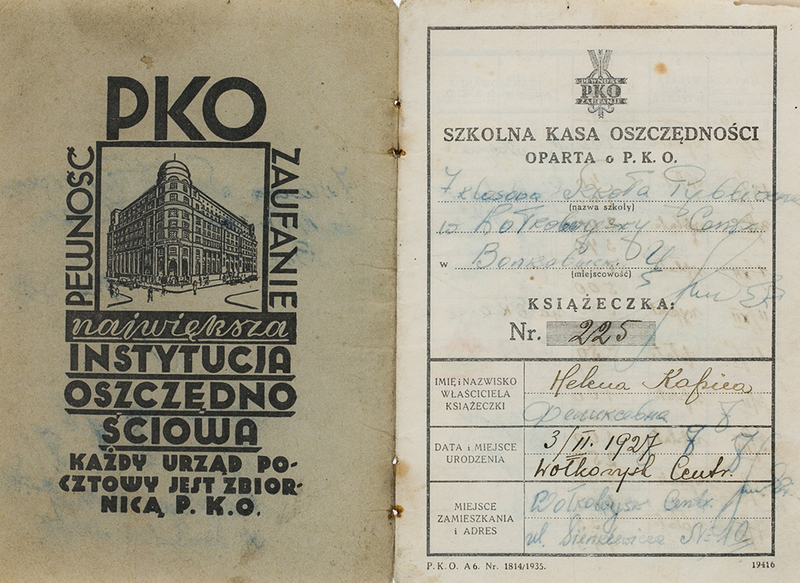 PKO
PEWNOŚĆ
ZAUFANIE
największa
INSTYTUCJA
OSZCZĘDNO
ŚCIOWA
KAŻDY URZĄD PO-
CZTOWY JEST ZBIOR-
NICĄ P. K. O.
PEWNOŚĆ
PKO
ZAUFANIE
SZKOLNA KASA OSZCZĘDNOŚCI
OPARTA o P. K. O.
7 klasowa Szkoła
(nazwa szkoły)
Centr.
w
(miejscowość)
KSIĄŻECZKA:
Nr. 225
IMIĘ i NAZWISKO
WŁAŚCICIELA
KSIĄŻECZKI
Helena Kapica
DATA i MIEJSCE
URODZENIA
3/II. 1927
Wołkowysk Centr.
MIEJSCE
ZAMIESZKANIA
i ADRES
Wołkowysk Centr.
ul. Sienkiewicza №
P. K. O. A 6. Nr. 1814/1935.
19416